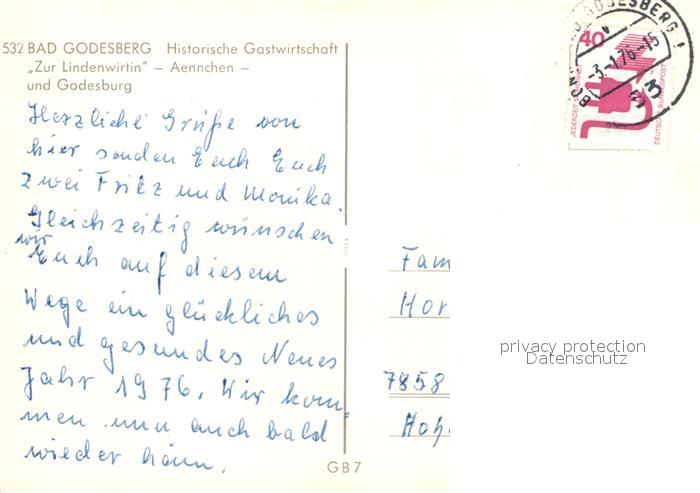 532 BAD GODESBERG Historische Gastwirtschaft
„Zur Lindenwirtin" – Aennchen –
und Godesburg
Herzliche Grüße von
hier senden Euch Euch
zwei Fritz und Monika.
Gleichzeitig wünschen
wir
Euch auf diesem
Wege ein glückliches
und gesundes Neues
Jahr 1976. Wir kom-
men nun auch bald
wieder heim.
GB7
Fam
Hor
7858
BONN-BAD GODESBERG 1
-3.-1.76-15
40
JEDERZEIT SICHERHEIT
DEUTSCHE BUNDESPOST
privacy protection
Datenschutz